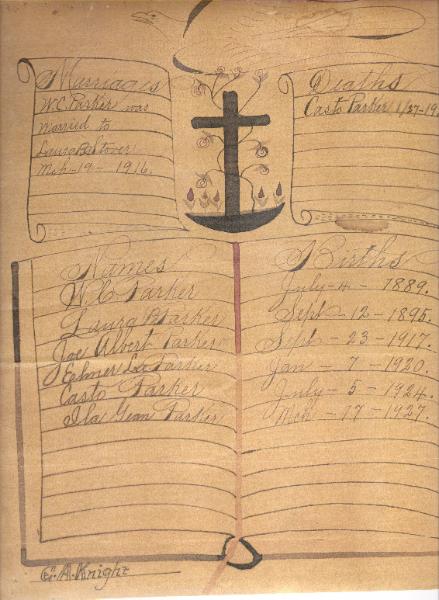 Marriages
W.C. Parker was
Married to
Laura B
Mch - 19 - 1916.
Deaths
Casto Parker 1/27-19
Names
W.C. Parker
Laura B Parker
Joe Albert Parker
Elmer Parker
Casto Parker
Ila Gean Parker
Births
July - 4 - 1889.
Sept - 12 - 1895.
Sept - 23 - 1917.
Jan - 7 - 1920.
July - 5 - 1924.
Mch - 17 - 1927.
E. A. Knight